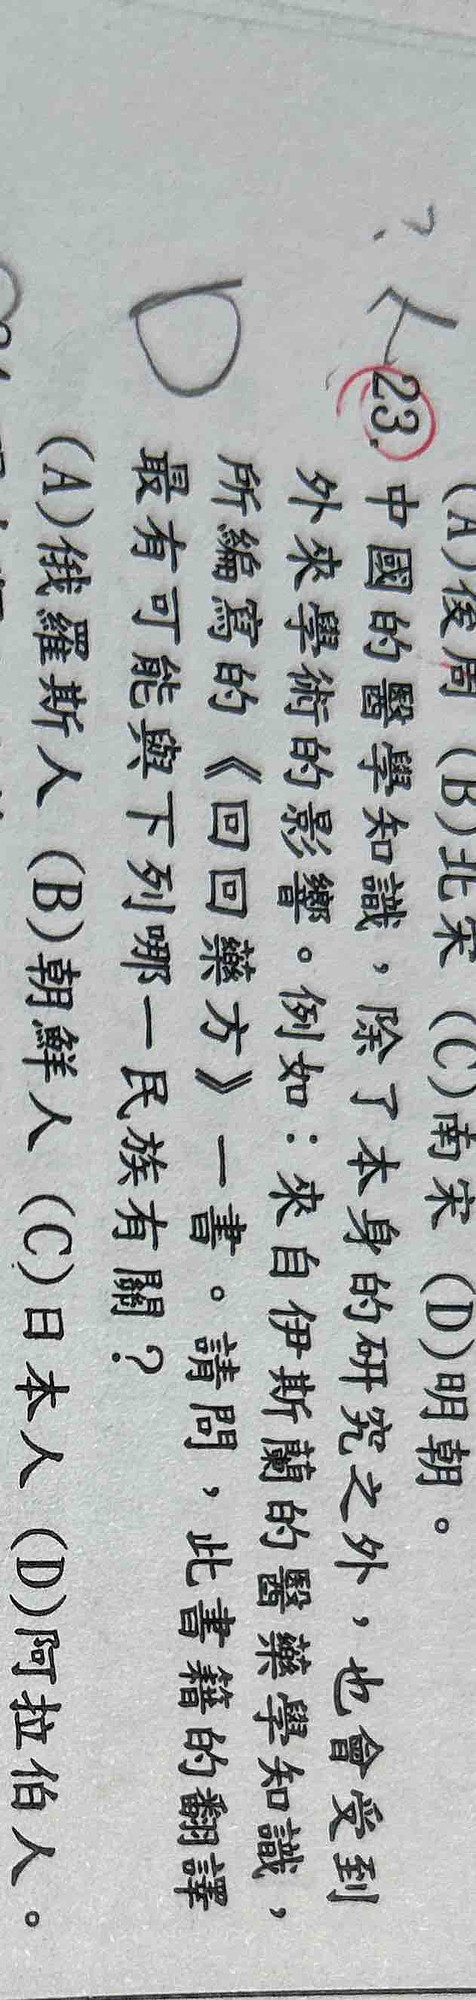 (A)後周 (B)北宋 (C)南宋 (D)明朝。
23.中國的醫學知識,除了本身的研究之外,也會受到
外來學術的影響。例如:來自伊斯蘭的醫藥學知識,
所編寫的《回回藥方》一書。請問,此書籍的翻譯
最有可能與下列哪一民族有關?
(A)俄羅斯人 (B)朝鮮人 (C)日本人 (D)阿拉伯人。
?
D